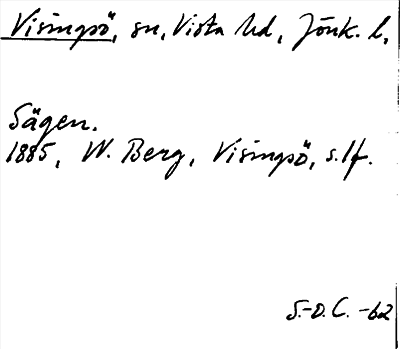 Visingsö, sn, Vista hd, Jönk. l.
Sägen.
1885, W. Berg, Visingsö, s. 14.
S.-O. C. -62